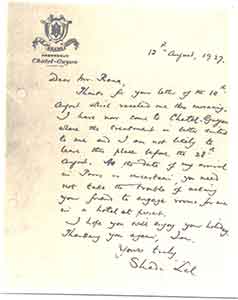 Chatel-Guyon
12th August, 1927.
Dear Mr. Rana,
Thanks for your letter of the 10th
August which reached me this morning.
I have now come to Chatel-Guyon
where the treatment is better suited
to me and I am not likely to
leave this place before the 28th
August. As the date of my arrival
in Paris is uncertain, you need
not take the trouble of asking
your friend to engage rooms for me
in a hotel at present.
I hope you will enjoy your holiday.
Thanking you again, I am.
Yours truly,
Shadi Lal